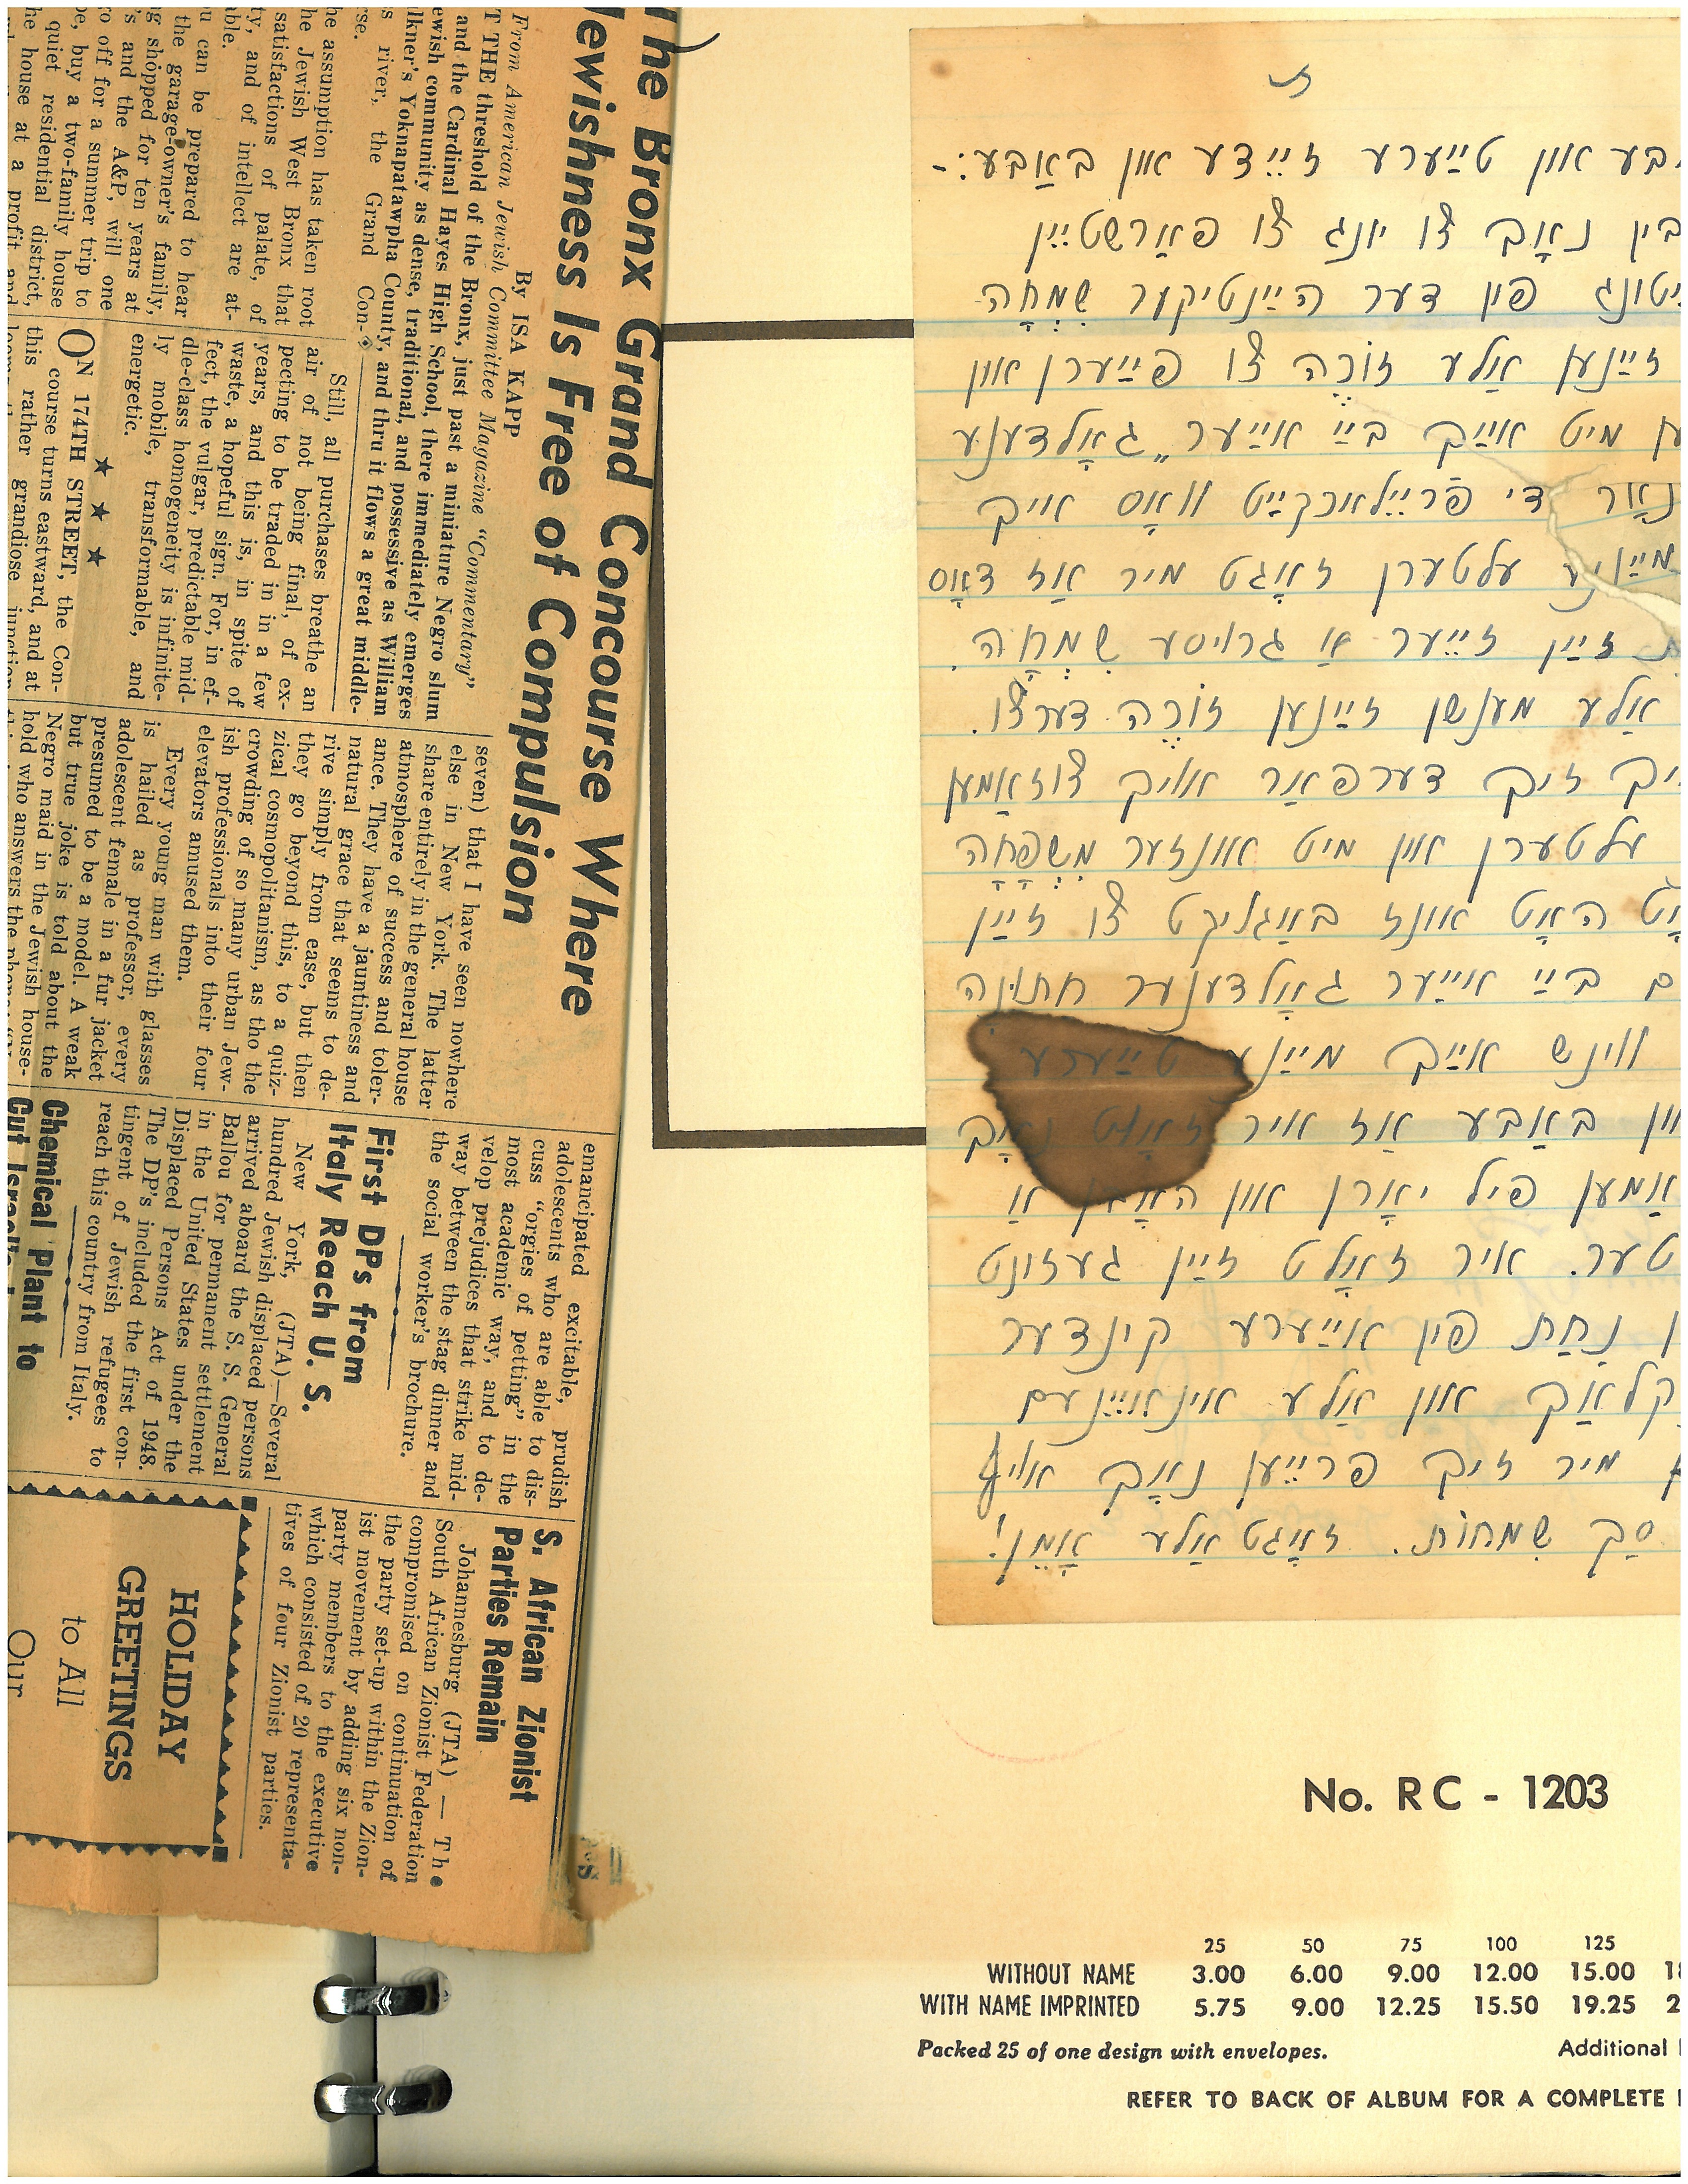 The Bronx Grand Concourse Where
Jewishness Is Free of Compulsion
By ISA KAPP
From American Jewish Committee Magazine "Commentary"
T THE threshold of the Bronx, just past a miniature Negro slum
and the Cardinal Hayes High School, there immediately emerges
ewish community as dense, traditional, and possessive as William
lkner's Yoknapatawpha County, and thru it flows a great middle-
s river, the Grand Con-
rse.
he assumption has taken root
he Jewish West Bronx that
satisfactions of palate, of
ty, and of intellect are at-
able.
u can be prepared to hear
the garage-owner's family,
g shopped for ten years at
's and the A&P, will one
ro off for a summer trip to
pe, buy a two-family house
quiet residential district,
he house at a profit and
Still, all purchases breathe an
air of not being final, of ex-
pecting to be traded in in a few
years, and this is, in spite of
waste, a hopeful sign. For, in ef-
fect, the vulgar, predictable mid-
dle-class homogeneity is infinite-
ly mobile, transformable, and
energetic.
★ ★ ★
ON 174TH STREET, the Con-
course turns eastward, and at
this rather grandiose junction
seven) that I have seen nowhere
else in New York. The latter
share entirely in the general house
atmosphere of success and toler-
ance. They have a jauntiness and
natural grace that seems to de-
rive simply from ease, but then
they go beyond this, to a quiz-
zical cosmopolitanism, as tho the
crowding of so many urban Jew-
ish professionals into their four
elevators amused them.
Every young man with glasses
is hailed as professor, every
adolescent female in a fur jacket
presumed to be a model. A weak
but true joke is told about the
Negro maid in the Jewish house-
hold who answers the phone
emancipated excitable, prudish
adolescents who are able to dis-
cuss "orgies of petting" in the
most academic way, and to de-
velop prejudices that strike mid-
way between the stag dinner and
the social worker's brochure.
First DPs from
Italy Reach U. S.
New York, (JTA)—Several
hundred Jewish displaced persons
arrived aboard the S. S. General
Ballou for permanent settlement
in the United States under the
Displaced Persons Act of 1948.
The DP's included the first con-
tingent of Jewish refugees to
reach this country from Italy.
Chemical Plant to
Cut
S. African Zionist
Parties Remain
Johannesburg (JTA) — The
South African Zionist Federation
compromised on continuation of
the party set-up within the Zion-
ist movement by adding six non-
party members to the executive
which consisted of 20 representa-
tives of four Zionist parties.
HOLIDAY
GREETINGS
to All
Our
בע און טײַערע זײדע און באָבע:-
בין נאָך צו יונג צו פאַרשטיין
יטונג פון דער הײַנטיקער שִׂמְחָה
זײַנען אַלע זוֹכֶה צו פײַערן און
ען מיט אײַך בײַ אײַער "גאָלדענע
נאָר די פרײלאכקײט וואָס אויף
מײַנע עלטערן זאָגט מיר אַז דאָס
זײַן זײער אַ גרויסע שִׂמְחָה.
אַלע מענשן זײַנען זוֹכֶה דערצו.
איך זיך דערפאַר אויך צוזאַמען
עלטערן און מיט אונזער מִשְׁפָּחָה
האָט אונז באַגליקט צו זײַן
ם בײַ אײַער גאָלדענער חתונה
ווינש אײַך מײַנע טײַערע
און באָבע אַז איר זאָלט נאָך
אַמען פיל יאָרן און האָבן אַ
טער. איר זאָלט זײַן געזונט
ן נַחַת פון אײַערע קינדער
קלאַך און אַלע אינאײנעם
מיר זיך פרײען נאָך אויף
סַך שִׂמחוֹת. זאָגט אַלע אָמֵן!
No. RC - 1203
25 50 75 100 125
WITHOUT NAME 3.00 6.00 9.00 12.00 15.00 18
WITH NAME IMPRINTED 5.75 9.00 12.25 15.50 19.25 2
Packed 25 of one design with envelopes. Additional
REFER TO BACK OF ALBUM FOR A COMPLETE